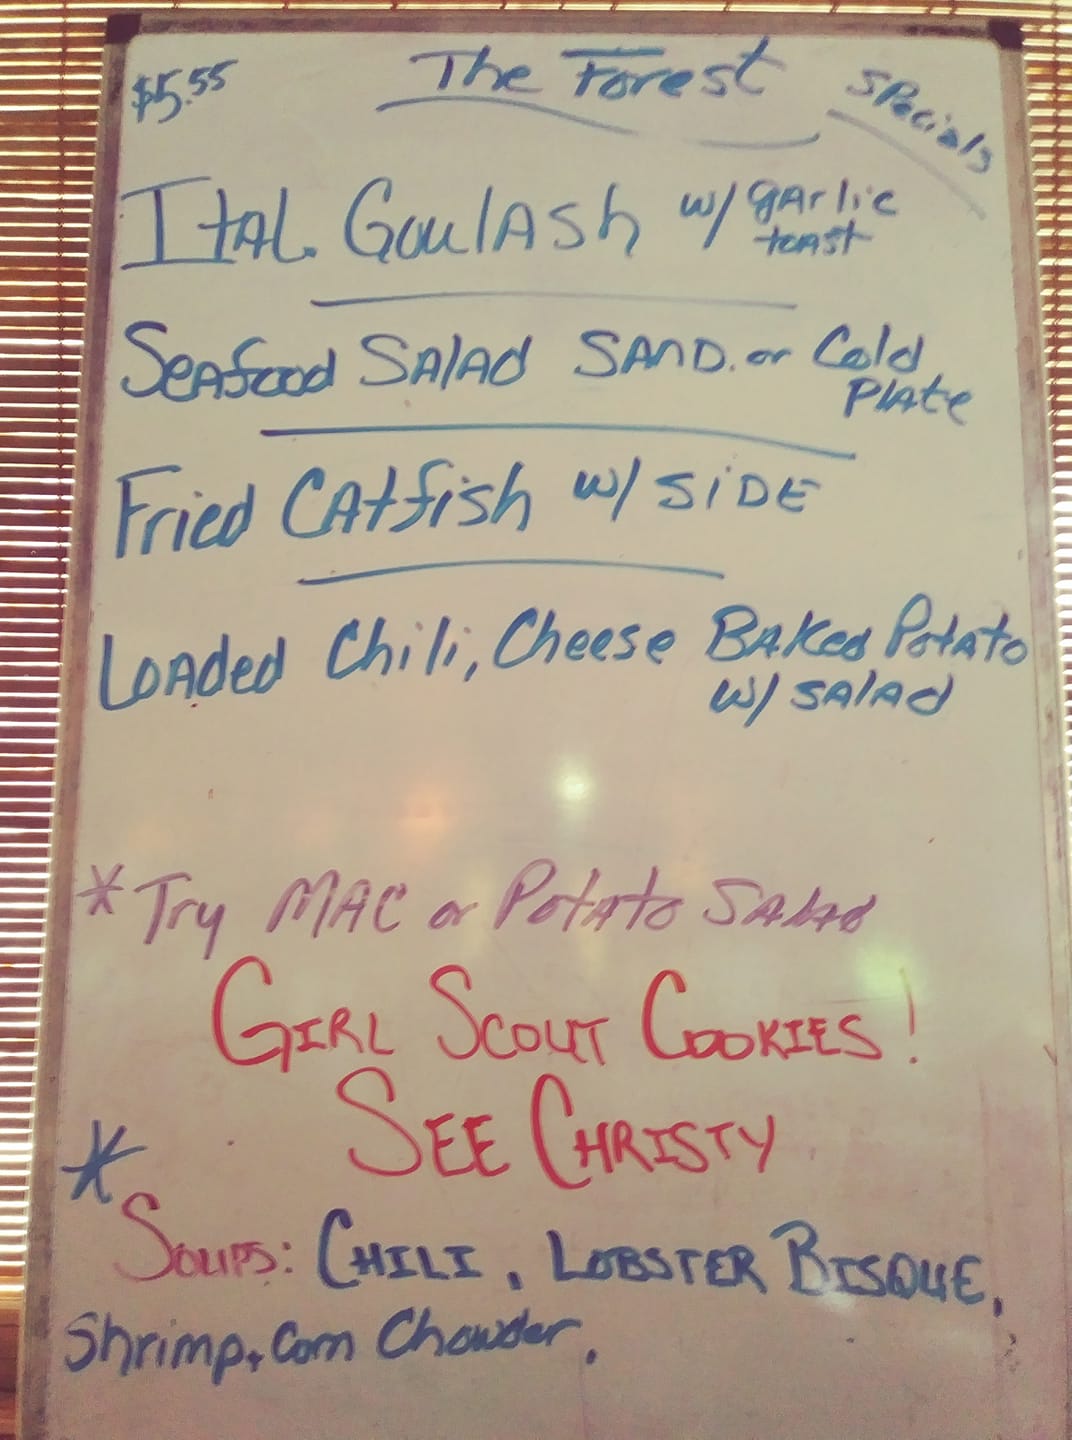 $5.55 The Forest Specials
Ital. Goulash w/ garlic
toast
Seafood Salad Sand. or Cold
Plate
Fried Catfish w/ Side
Loaded Chili, Cheese Baked Potato
w/ salad
*Try Mac or Potato Salad
Girl Scout Cookies!
See Christy
*
Soups: Chili, Lobster Bisque,
Shrimp + Corn Chowder.